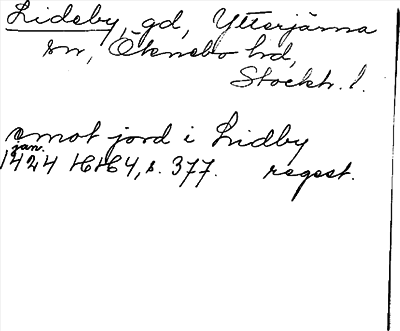 Lideby, gd, Ytterjärna
sn, Öknebo hd,
Stockh. l.
emot jord i Lidby
jan.
1424 HH4, s. 377. regest.